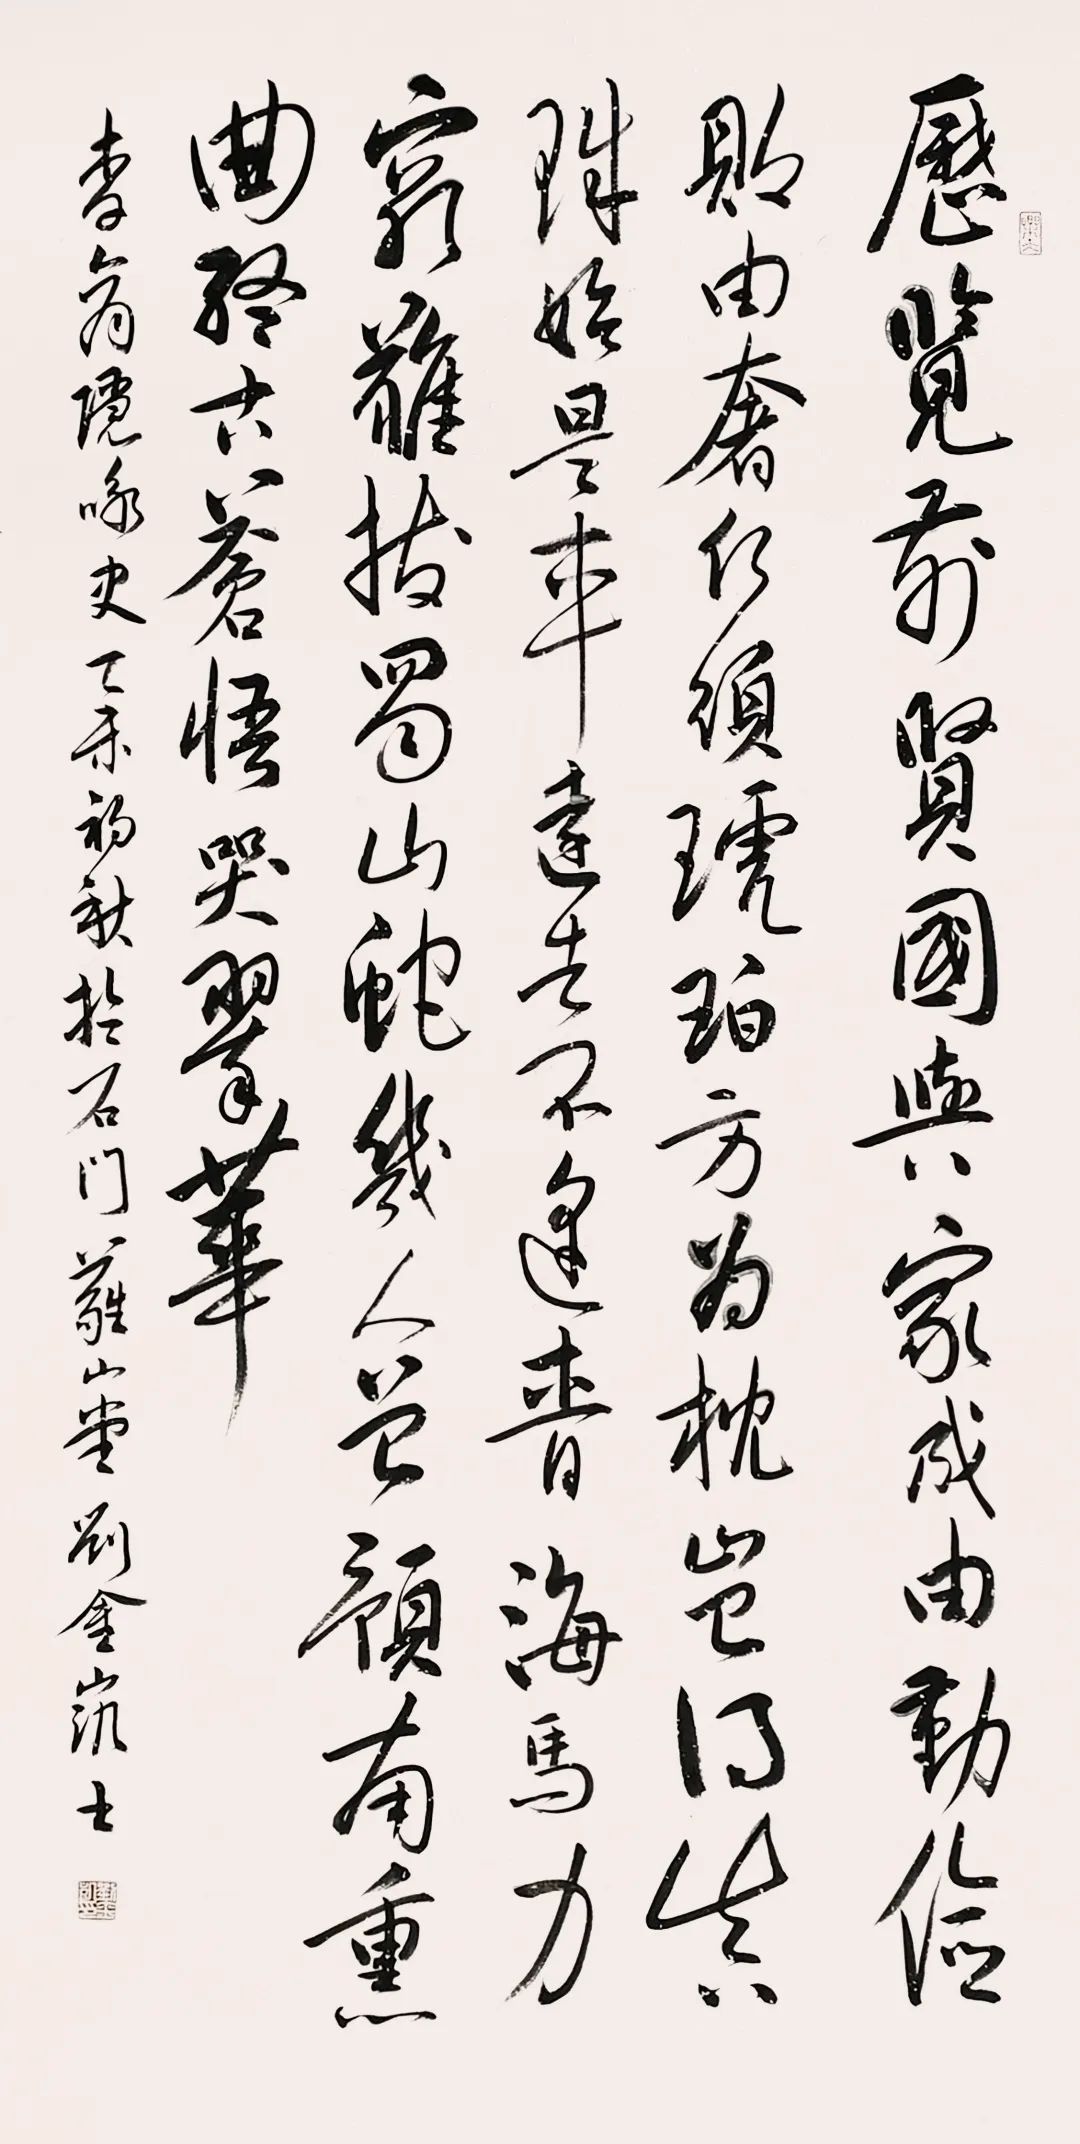 歷覽前賢國與家成由勤儉
敗由奢何須琥珀方為枕豈得真
珠始是車遠去不逢青海馬力
窮難拔蜀山蛇幾人曾預南熏
曲終古蒼悟哭翠華
李商隱咏史乙未初秋於石門山堂劉金凱